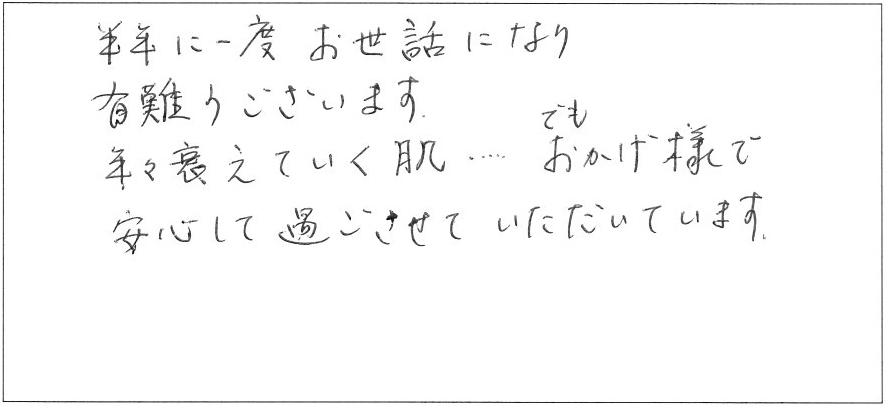 半年に一度 お世話になり
有難うございます.
でも
年々衰えていく肌…… おかげ様で
安心して過ごさせていただいています.